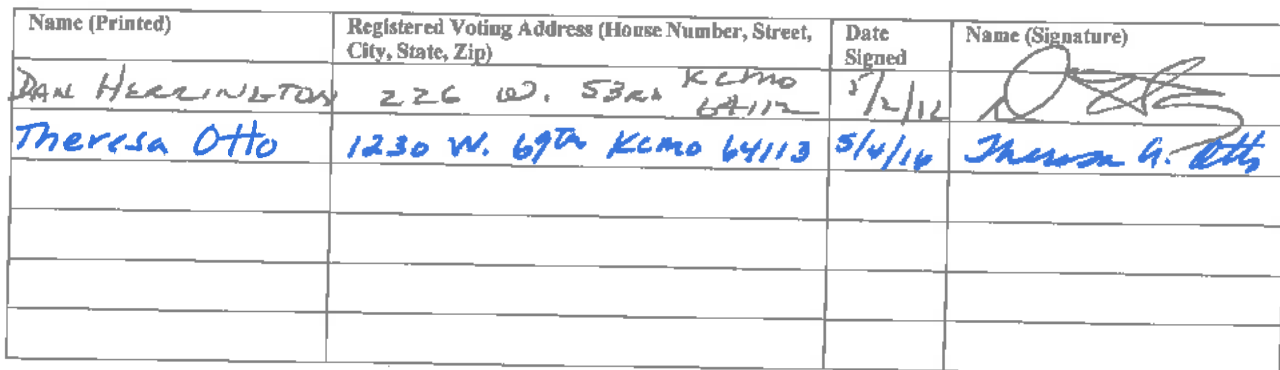 Name (Printed)
Registered Voting Address (House Number, Street,
City, State, Zip)
Date
Signed
Name (Signature)
DAN HERRINGTON
226 W. 53RD KCMO
64112
Theresa Otto
1230 W. 69th KCMO 64113
5/4/16
Theresa G. Otto